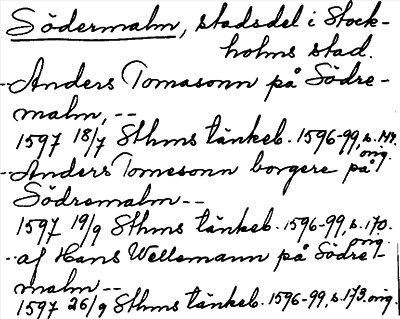 Södermalm, stadsdel i Stock-
holms stad.
--Anders Tomasonn på Södre-
malm, --
1597 18/7 Sthms tänkeb. 1596-99, s. 147.
orig.
--Anders Tomesonn borgere på
Södremalm--
1597 19/9 Sthms tänkeb. 1596-99, s. 170.
orig.
--af Hans Wellemann på Södre-
malm--
1597 26/9 Sthms tänkeb. 1596-99, s. 173. orig.